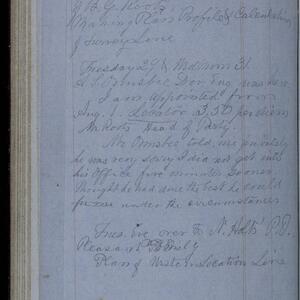 J. H. G. Root's
Making Plans Profiles & Calculations
of Survey Line
Tuesday 29
A. S. Ormsbee Div Eng was here
I am appointed from
Aug. 1. Locator 3.50 per diem
Mr Roots Head of Party.
Mr Ormsbee told me privately
he was very sorry I did not get into
his Office five minutes sooner.
Thought he had done the best he could
for me under the circumstances
Tues. Eve over to N. Holts P.D.
Pleasant Family
Plan of Western Location Line